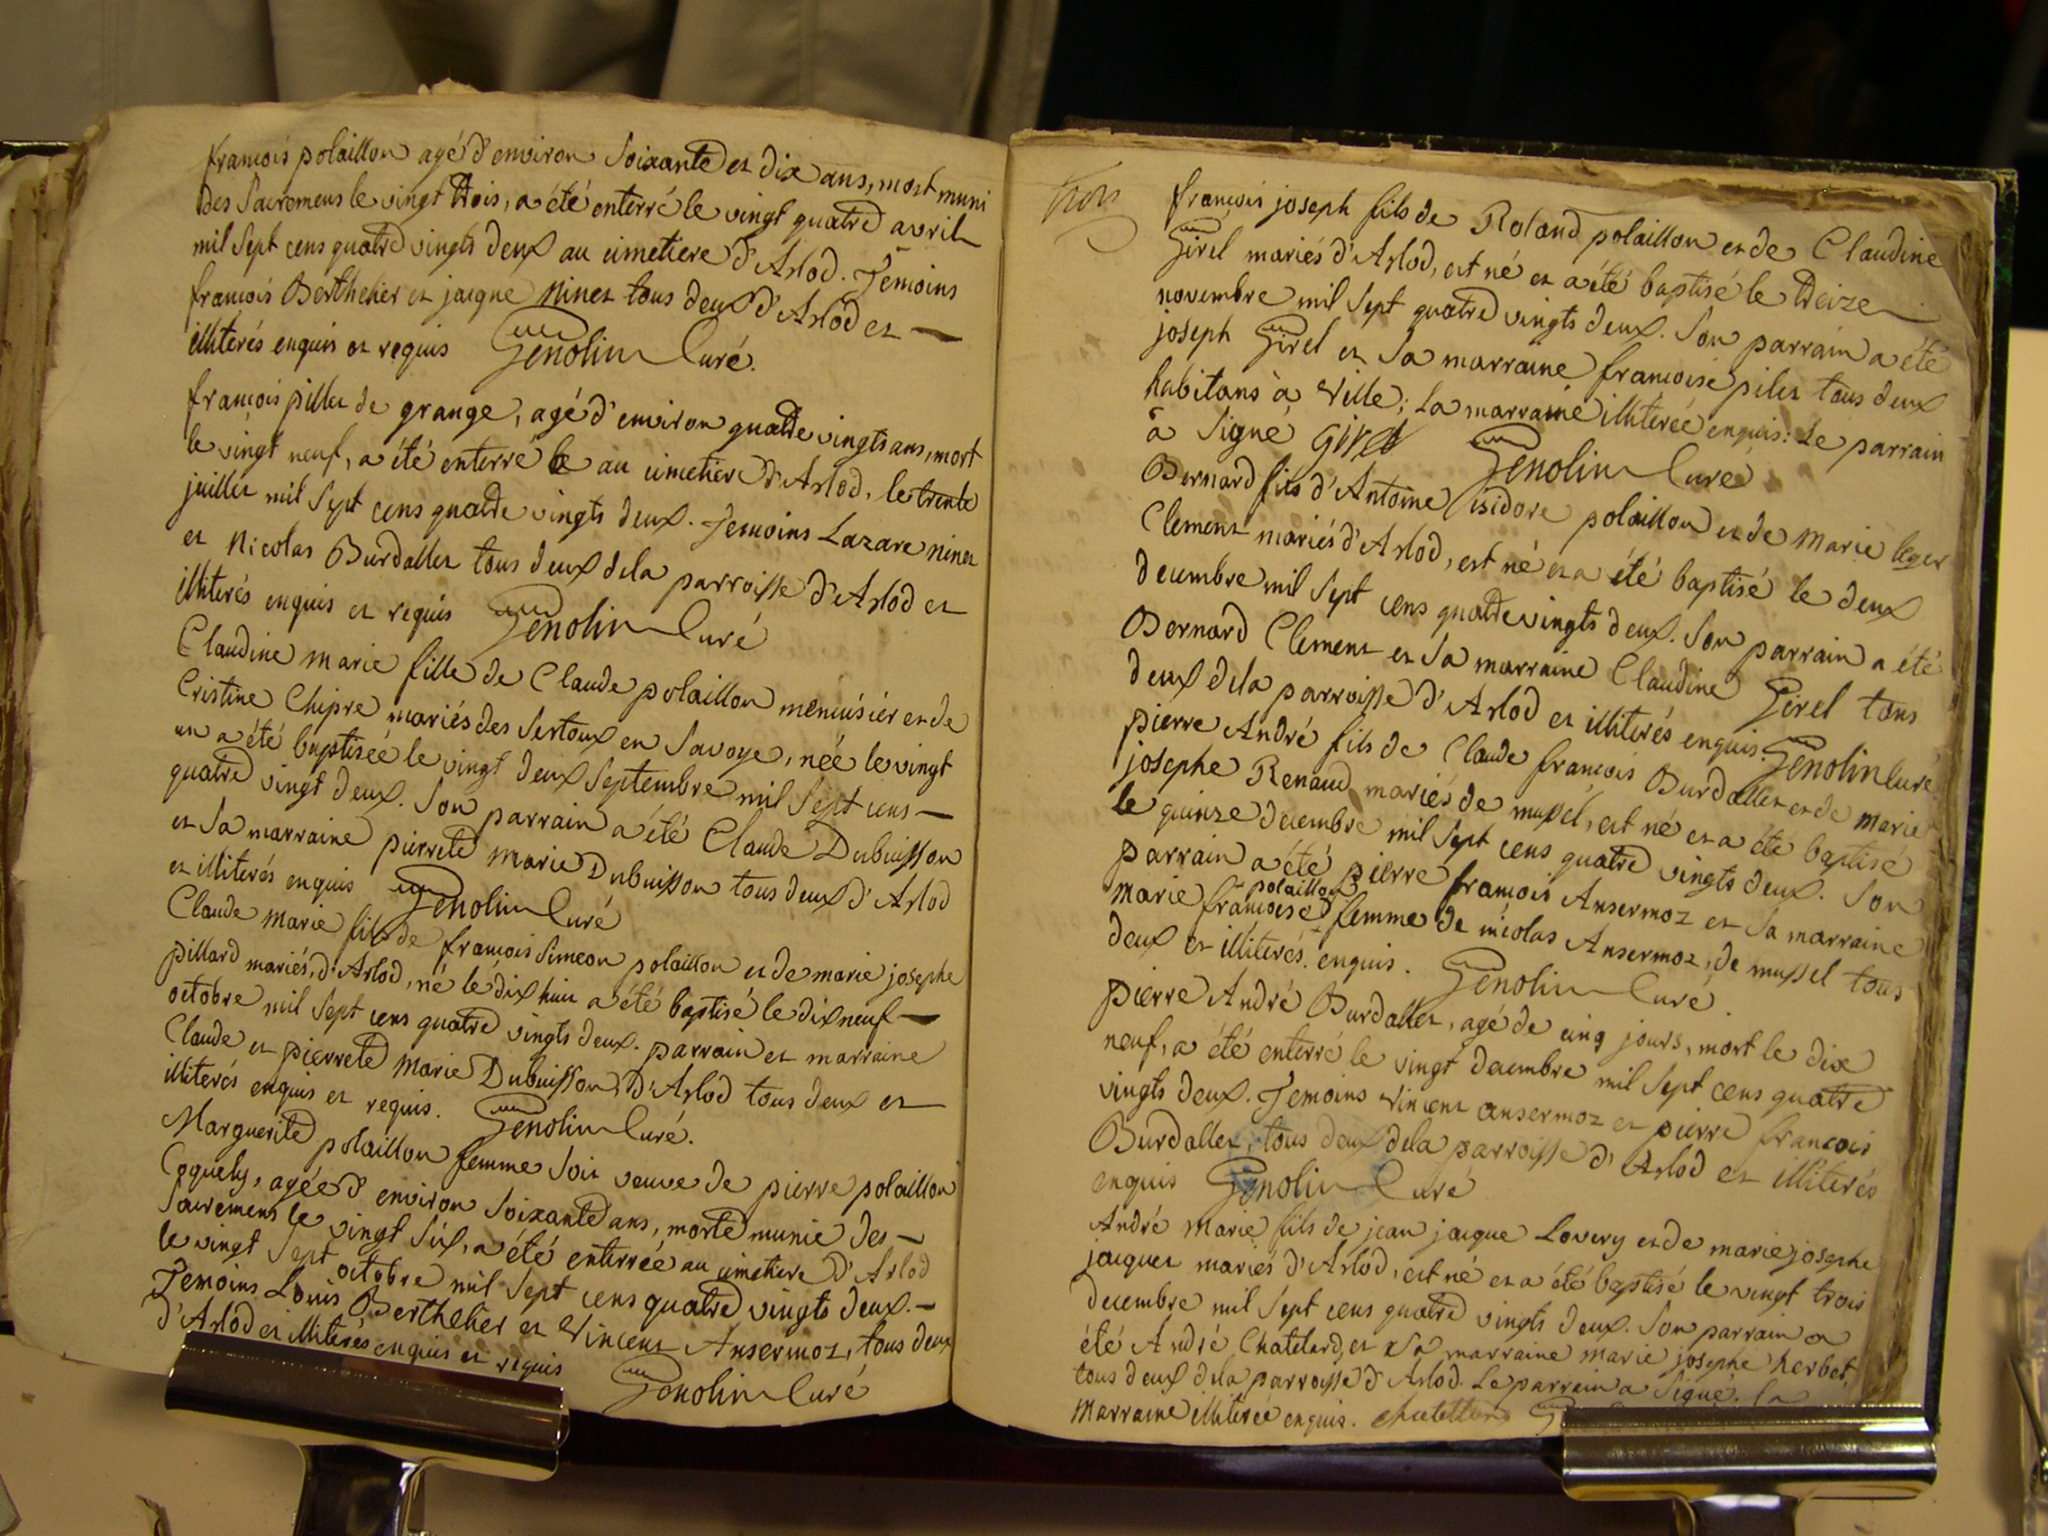 francois polaillon agé d'environ soixante et dix ans, mort muni
des sacremens le vingt trois, a été enterré le vingt quatre avril
mil sept cens quatre vingts deux au cimetiere d'Arlod. Temoins
francois Berthelier et jacque Ninet tous deux d'Arlod et —
illiterés enquis et requis Genolin Curé.
francois pillet de grange, agé d'environ quatre vingts ans, mort
le vingt neuf, a été enterré au cimetiere d'Arlod, le trente
juillet mil sept cens quatre vingts deux. Temoins Lazare ninet
et Nicolas Burdallet tous deux de la parroisse d'Arlod et
illiterés enquis et requis Genolin Curé
Claudine marie fille de Claude polaillon menuisiér et de
Cristine Chipre mariés des sertoux en savoye, née le vingt
un a été baptiseé le vingt deux septembre mil sept cens —
quatre vingt deux. son parrain a été Claude Dubuisson
et sa marraine pierrete marie Dubuisson tous deux d'Arlod
et illiterés enquis Genolin Curé
Claude marie fils de francois simeon polaillon et de marie josephe
pillard mariés, d'Arlod, né le dix huit a été baptisé le dix neuf —
octobre mil sept cens quatre vingts deux. parrain et marraine
Claude et pierrete marie Dubuisson, d'Arlod tous deux et
illiterés enquis et requis. Genolin Curé.
Marguerite polaillon femme soit veuve de pierre polaillon
Coquely, agée d'environ soixante ans, morte munie des —
sacremens le vingt six, a été enterrée au cimetiere d'Arlod
le vingt sept octobre mil sept cens quatre vingts deux. —
Temoins Louis Berthelier et Vincent Ansermoz, tous deux
d'Arlod et illiterés enquis et requis
Genolin Curé
francois joseph fils de Roland polaillon et de Claudine
Girel mariés d'Arlod, est né et a été baptisé le treize
novembre mil sept quatre vingts deux. son parrain a été
joseph Girel et sa marraine francoise pilet tous deux
habitans à Ville; la marraine illiterée enquis: le parrain
a signé Girel Genolin Curé
Bernard fils d'Antoine isidore polaillon et de marie leger
Clement mariés d'Arlod, est né et a été baptisé le deux
decembre mil sept cens quatre vingts deux. son parrain a été
Bernard Clement et sa marraine Claudine Girel tous
deux de la parroisse d'Arlod et illiterés enquis. Genolin Curé
pierre André fils de Claude francois Burdallet et de marie
josephe Renaud mariés de mussel, est né et a été baptisé
le quinze decembre mil sept cens quatre vingts deux. son
parrain a été pierre francois Ansermoz et sa marraine
marie francoise polaillon femme de nicolas Ansermoz, de mussel tous
deux et illiterés enquis. Genolin Curé.
pierre André Burdallet, agé de cinq jours, mort le dix
neuf, a été enterré le vingt decembre mil sept cens quatre
vingts deux. Temoins Vincent ansermoz et pierre francois
Burdallet, tous deux de la parroisse d'Arlod et illiterés
enquis Genolin Curé
André marie fils de jean jacque Lovery et de marie josephe
jacquet mariés d'Arlod, est né et a été baptisé le vingt trois
decembre mil sept cens quatre vingts deux. son parrain a
été André Chatelard, et sa marraine marie josephe herbet,
tous deux de la parroisse d'Arlod. Le parrain a signé. la
marraine illiterée enquis.